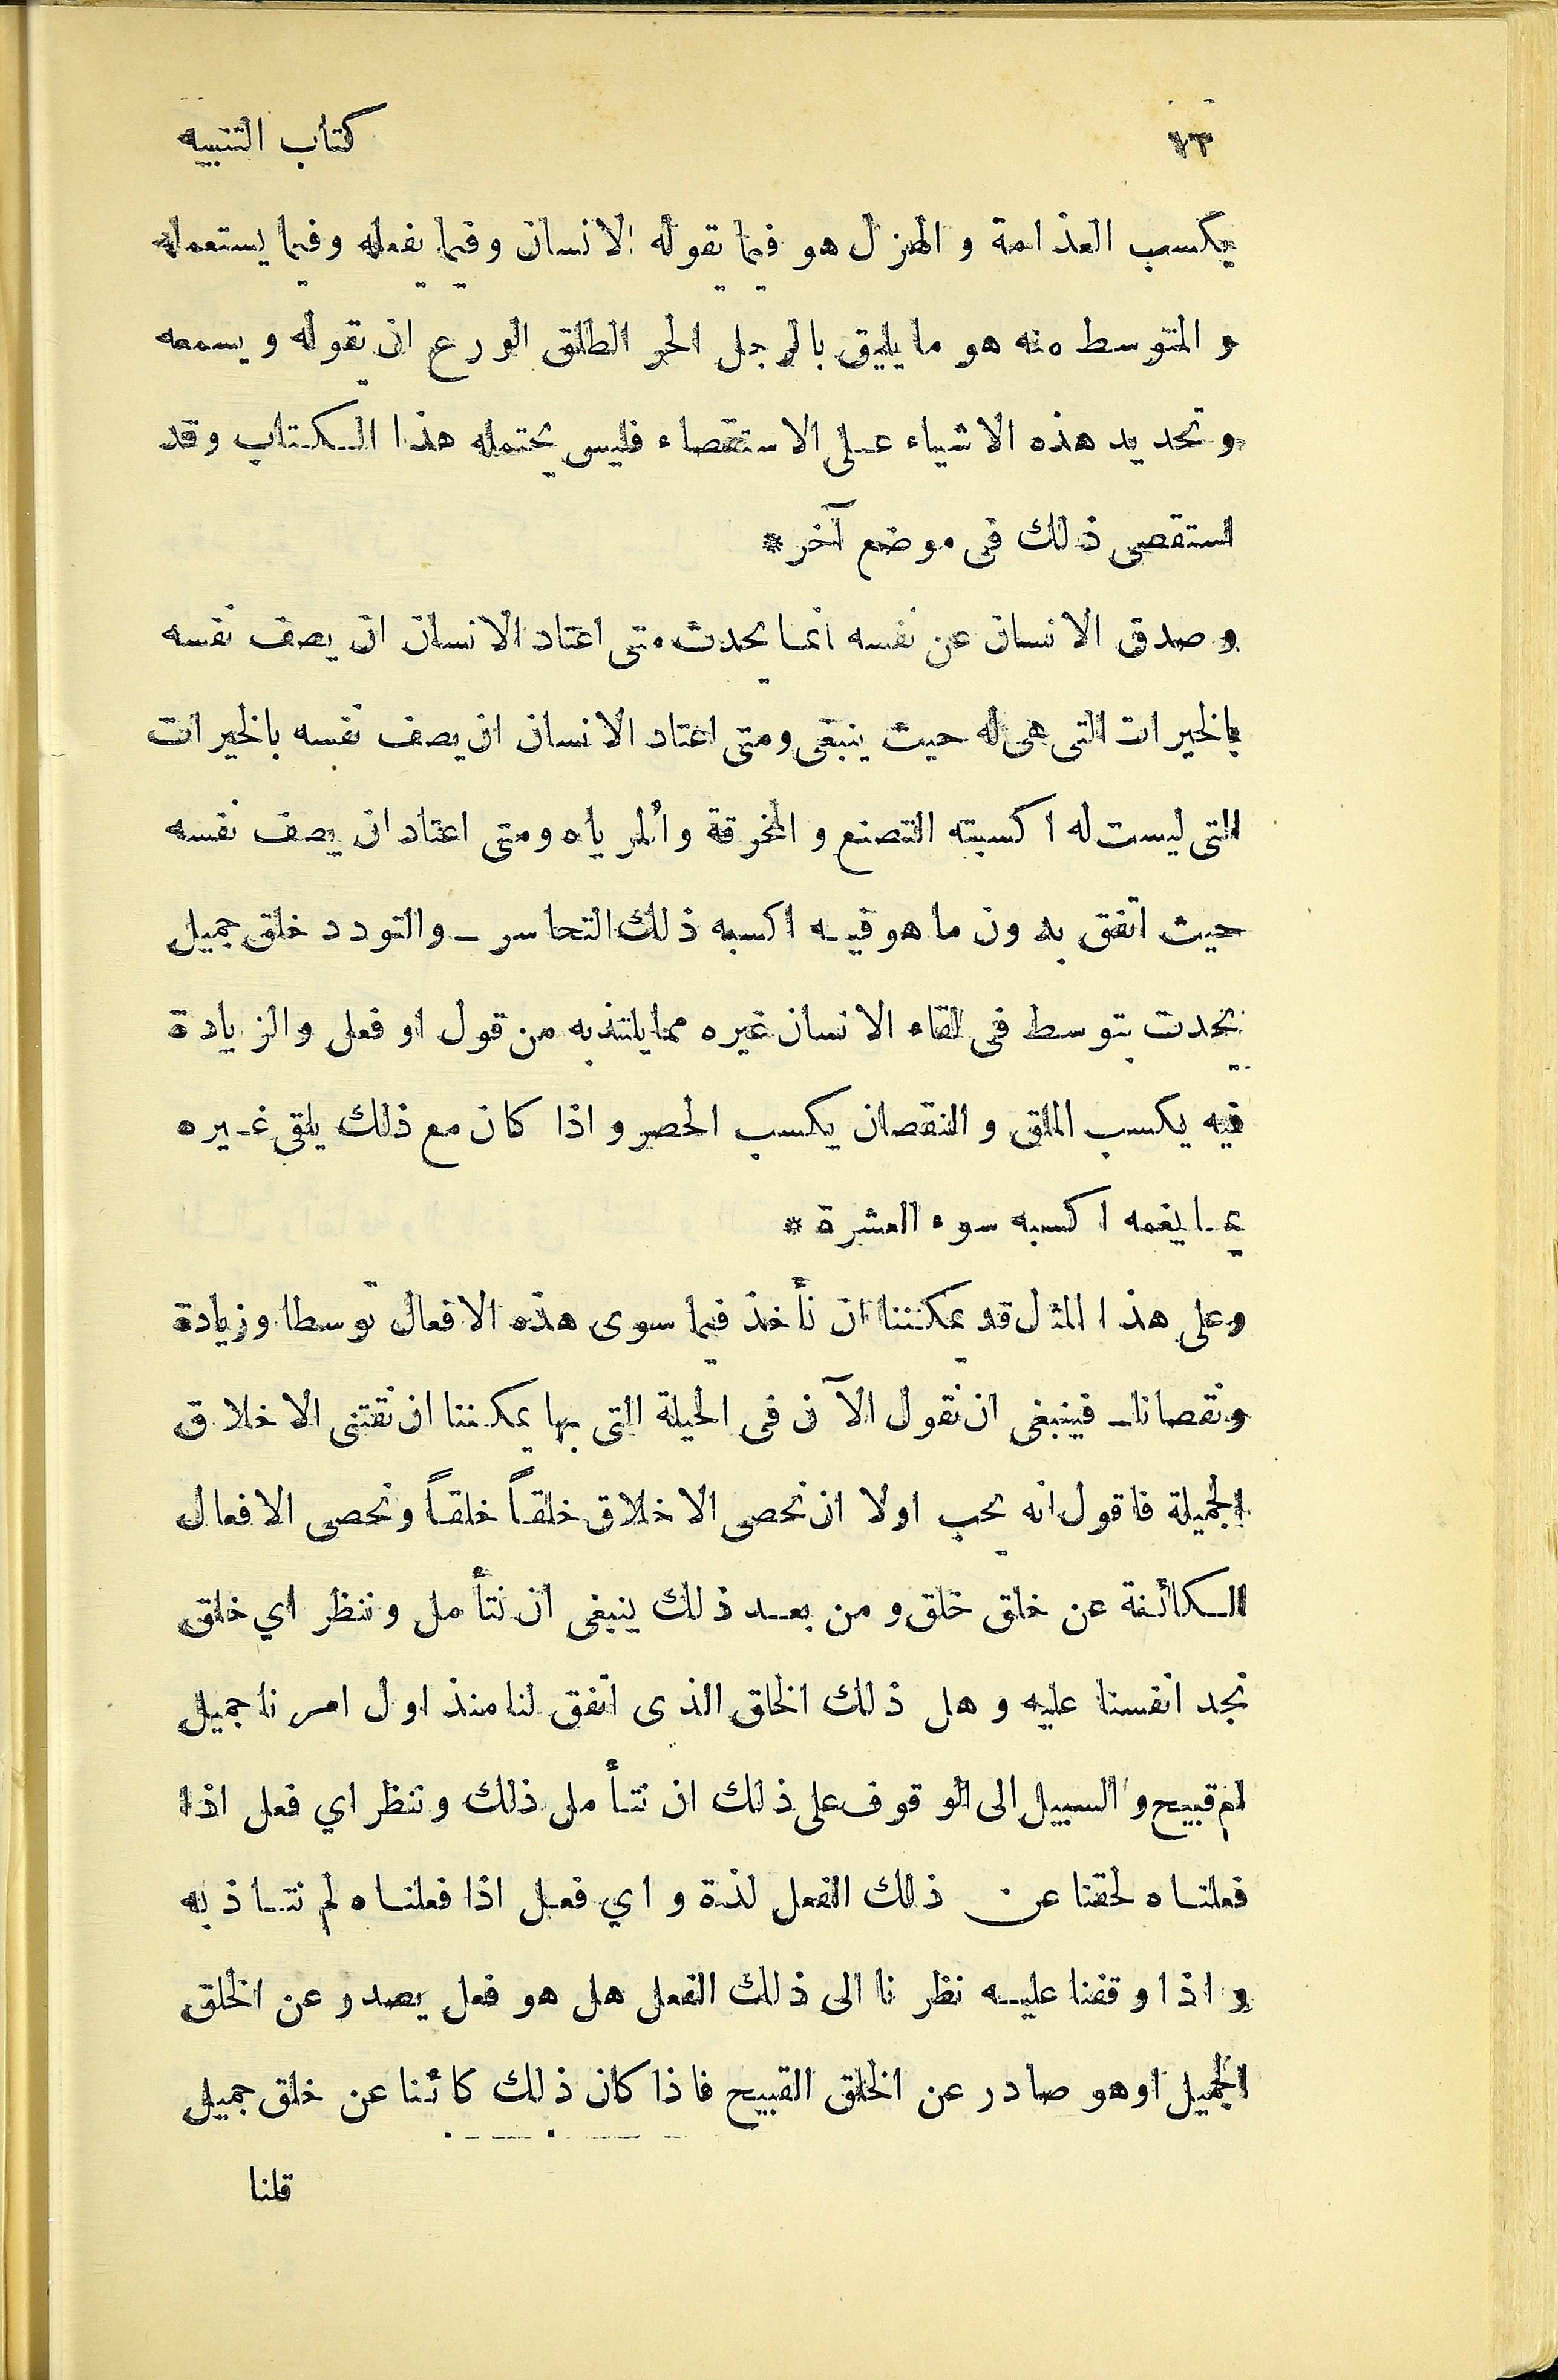 كتاب التنبيه
يكسب الفذامة والهزل هو فيما يقوله الانسان وفيما يفعله وفيما يستعمله
والمتوسط منه هو ما يليق بالرجل الحر الطلق الورع ان يقوله ويسمعه
وتحديد هذه الاشياء على الاستقصاء فليس يحتمله هذا الكتاب وقد
استقصى ذلك فى موضع آخر *
وصدق الانسان عن نفسه انما يحدث متى اعتاد الانسان ان يصف نفسه
بالخيرات التى هى له حيث ينبغى ومتى اعتاد الانسان ان يصف نفسه بالخيرات
التى ليست له اكسبته التصنع والمخرقة والمرياه ومتى اعتاد ان يصف نفسه
حيث اتفق بدون ما هو فيه اكسبه ذلك التحاسر ــ والتودد خلق جميل
يحدث بتوسط فى لقاء الانسان غيره مما يلتذ به من قول او فعل والزيادة
فيه يكسب الملق والنقصان يكسب الحصر واذا كان مع ذلك يلقى غيره
بما يغمه اكسبه سوء العشرة *
وعلى هذا المثل قد يمكننا ان نأخذ فيما سوى هذه الافعال توسطا وزيادة
ونقصانا ــ فينبغى ان نقول الآن فى الحيلة التى بها يمكننا ان نقتنى الاخلاق
الجميلة فاقول انه يجب اولا ان نحصى الاخلاق خلقاً خلقاً ونحصى الافعال
الكائنة عن خلق خلق ومن بعد ذلك ينبغى ان نتأمل وننظر اي خلق
نجد انفسنا عليه وهل ذلك الخلق الذى اتفق لنا منذ اول امرنا جميل
ام قبيح والسبيل الى الوقوف على ذلك ان نتأمل ذلك وننظر اي فعل اذا
فعلناه لحقنا عن ذلك الفعل لذة واي فعل اذا فعلناه لم نتاذ به
واذا وقفنا عليه نظرنا الى ذلك الفعل هل هو فعل يصدر عن الخلق
الجميل اوهو صادر عن الخلق القبيح فاذا كان ذلك كائنا عن خلق جميل
قلنا